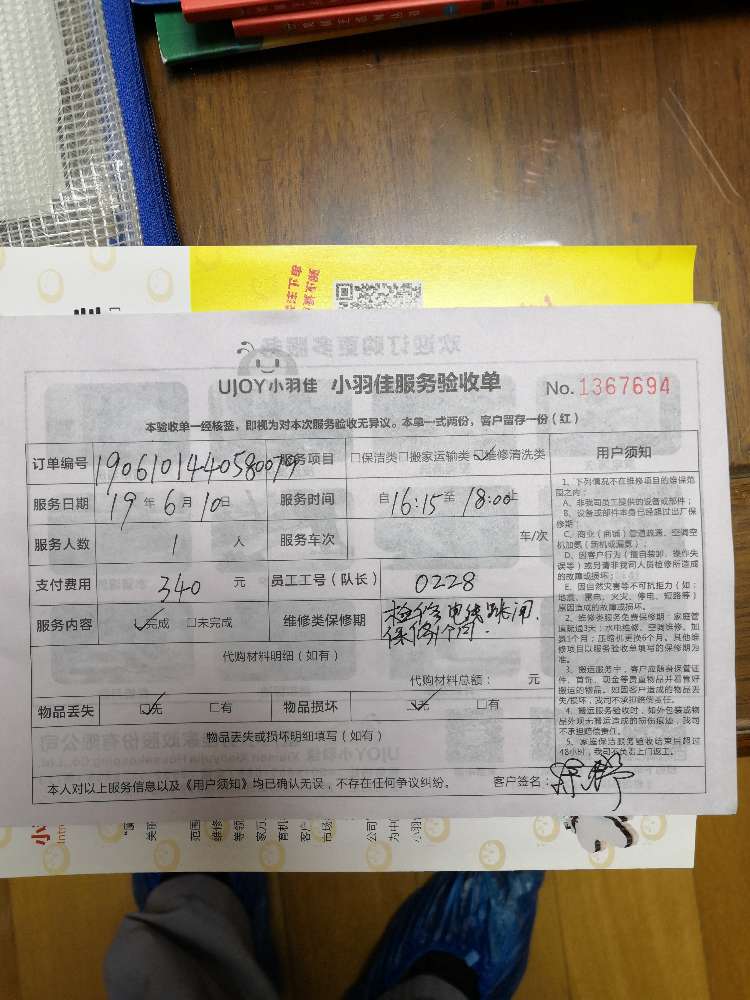 UJOY小羽佳 小羽佳服务验收单 No. 1367694
本验收单一经核签，即视为对本次服务验收无异议。本单一式两份，客户留存一份（红）
订单编号 190610144058007 服务项目 □保洁类□搬家运输类☑维修清洗类 用户须知
服务日期 19 年 6 月 10 日 服务时间 自 16:15 至 18:00 止
服务人数 1 人 服务车次 车/次
支付费用 340 元 员工工号（队长） 0228
服务内容 ☑完成 □未完成 维修类保修期 检修电线跳闸.
保修1个月.
代购材料明细（如有）
代购材料总额： 元
物品丢失 ☑无 □有 物品损坏 ☑无 □有
物品丢失或损坏明细填写（如有）
本人对以上服务信息以及《用户须知》均已确认无误，不存在任何争议纠纷。 客户签名：
1、下列情况不在维修项目的维保范
围之内：
A、非我司员工提供的设备或部件；
B、设备或部件本身已经超过出厂保
修期；
C、商业（商铺）管道疏通、空调空
机加氨（新机或漏氨）；
D、因客户行为（擅自装卸、操作失
误等）或另请非我司人员检修所造成
的故障或损坏；
E、因自然灾害等不可抗拒力（如：
地震、雷电、火灾、停电、短路等）
原因造成的故障或损坏。
2、维修类服务免费保修期：家庭管
道疏通3天；水电维修、空调维修、加
氨1个月；压缩机更换6个月。其他维
修项目以服务验收单填写的保修期为
准。
3、搬运服务中，客户应随身保管证
件、首饰、现金等贵重物品并看管好
搬运的物品。如因客户造成的物品丢
失/损坏，我司不承担赔偿责任。
4、搬运服务验收时，如外包装或物
品外观无搬运造成的损伤痕迹，我司
不承担赔偿责任。
5、家庭保洁服务验收结束后超过
48小时，我司不负责上门返工。